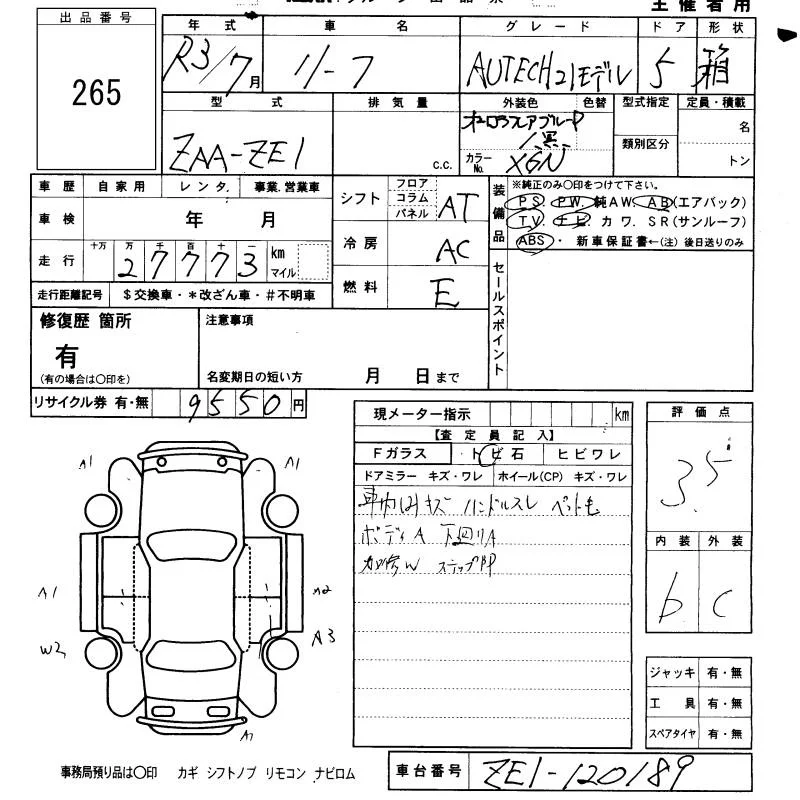 主催者用
出品番号
265
年式 車名 グレード ドア 形状
R3/7月 リーフ AUTECH21モデル 5 箱
型式 排気量 外装色 色替 型式指定 定員・積載
ZAA-ZE1 c.c. オーロラフレアブルーP/黒 名
カラーNo. XGN 類別区分 トン
車歴 自家用 レンタ. 事業.営業車
車検 年 月
走行 十万 万 千 百 十 一 km マイル
27773
走行距離記号 $交換車・*改ざん車・#不明車
シフト フロア コラム パネル AT
冷房 AC
燃料 E
装備品 ※純正のみ〇印をつけて下さい。
PS PW. 純AW AB(エアバック)
TV. ナビ カワ. SR(サンルーフ)
ABS・ 新車保証書←(注) 後日送りのみ
セールスポイント
修復歴 箇所
有
(有の場合は〇印を)
注意事項
名変期日の短い方 月 日まで
リサイクル券 有・無 9550円
現メーター指示 km
【査定員記入】
Fガラス トビ石 ヒビワレ
ドアミラー キズ・ワレ ホイール(CP) キズ・ワレ
車内ハキズ ハンドルスレ ペット毛
ボディA 下廻りA
加修W ステップ凹
評価点
3.5
内装 外装
b C
ジャッキ 有・無
工具 有・無
スペアタイヤ 有・無
A1 A1
A1 A2
W2 A3
A1
事務局預り品は〇印 カギ シフトノブ リモコン ナビロム
車台番号 ZE1-120189